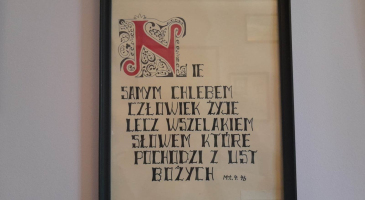 NIE
SAMYM CHLEBEM
CZŁOWIEK ŻYJE
LECZ WSZELAKIEM
SŁOWEM KTÓRE
POCHODZI Z UST
BOŻYCH